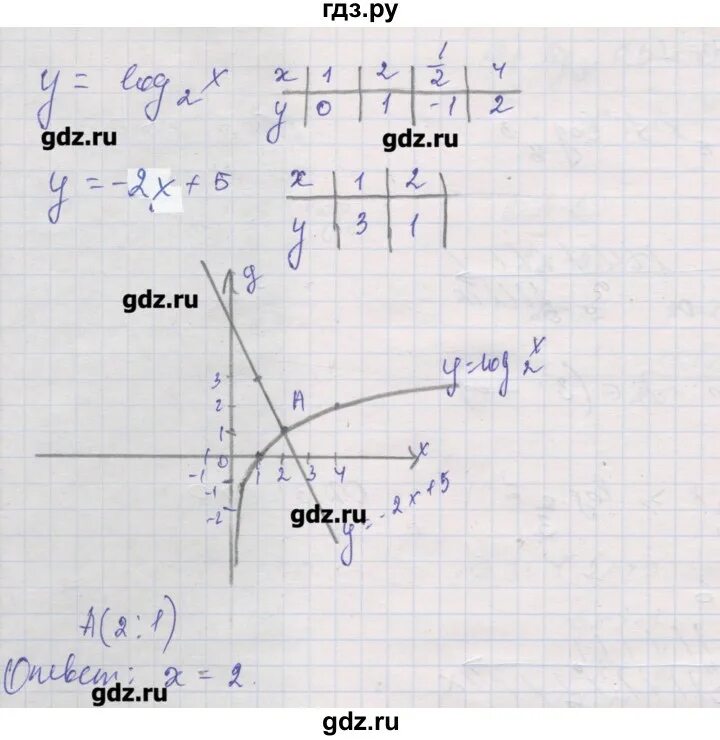 гдз.ру
y = log₂x
x 1 2 1/2 4
y 0 1 -1 2
gdz.ru
gdz.ru
y = -2x + 5
x 1 2
y 3 1
gdz.ru
y
3
2
1
0
-1
-1
-2
1 2 3 4
x
A
y=log₂x
y=-2x+5
gdz.ru
A(2;1)
Ответ: x = 2.
gdz.ru
gdz.ru